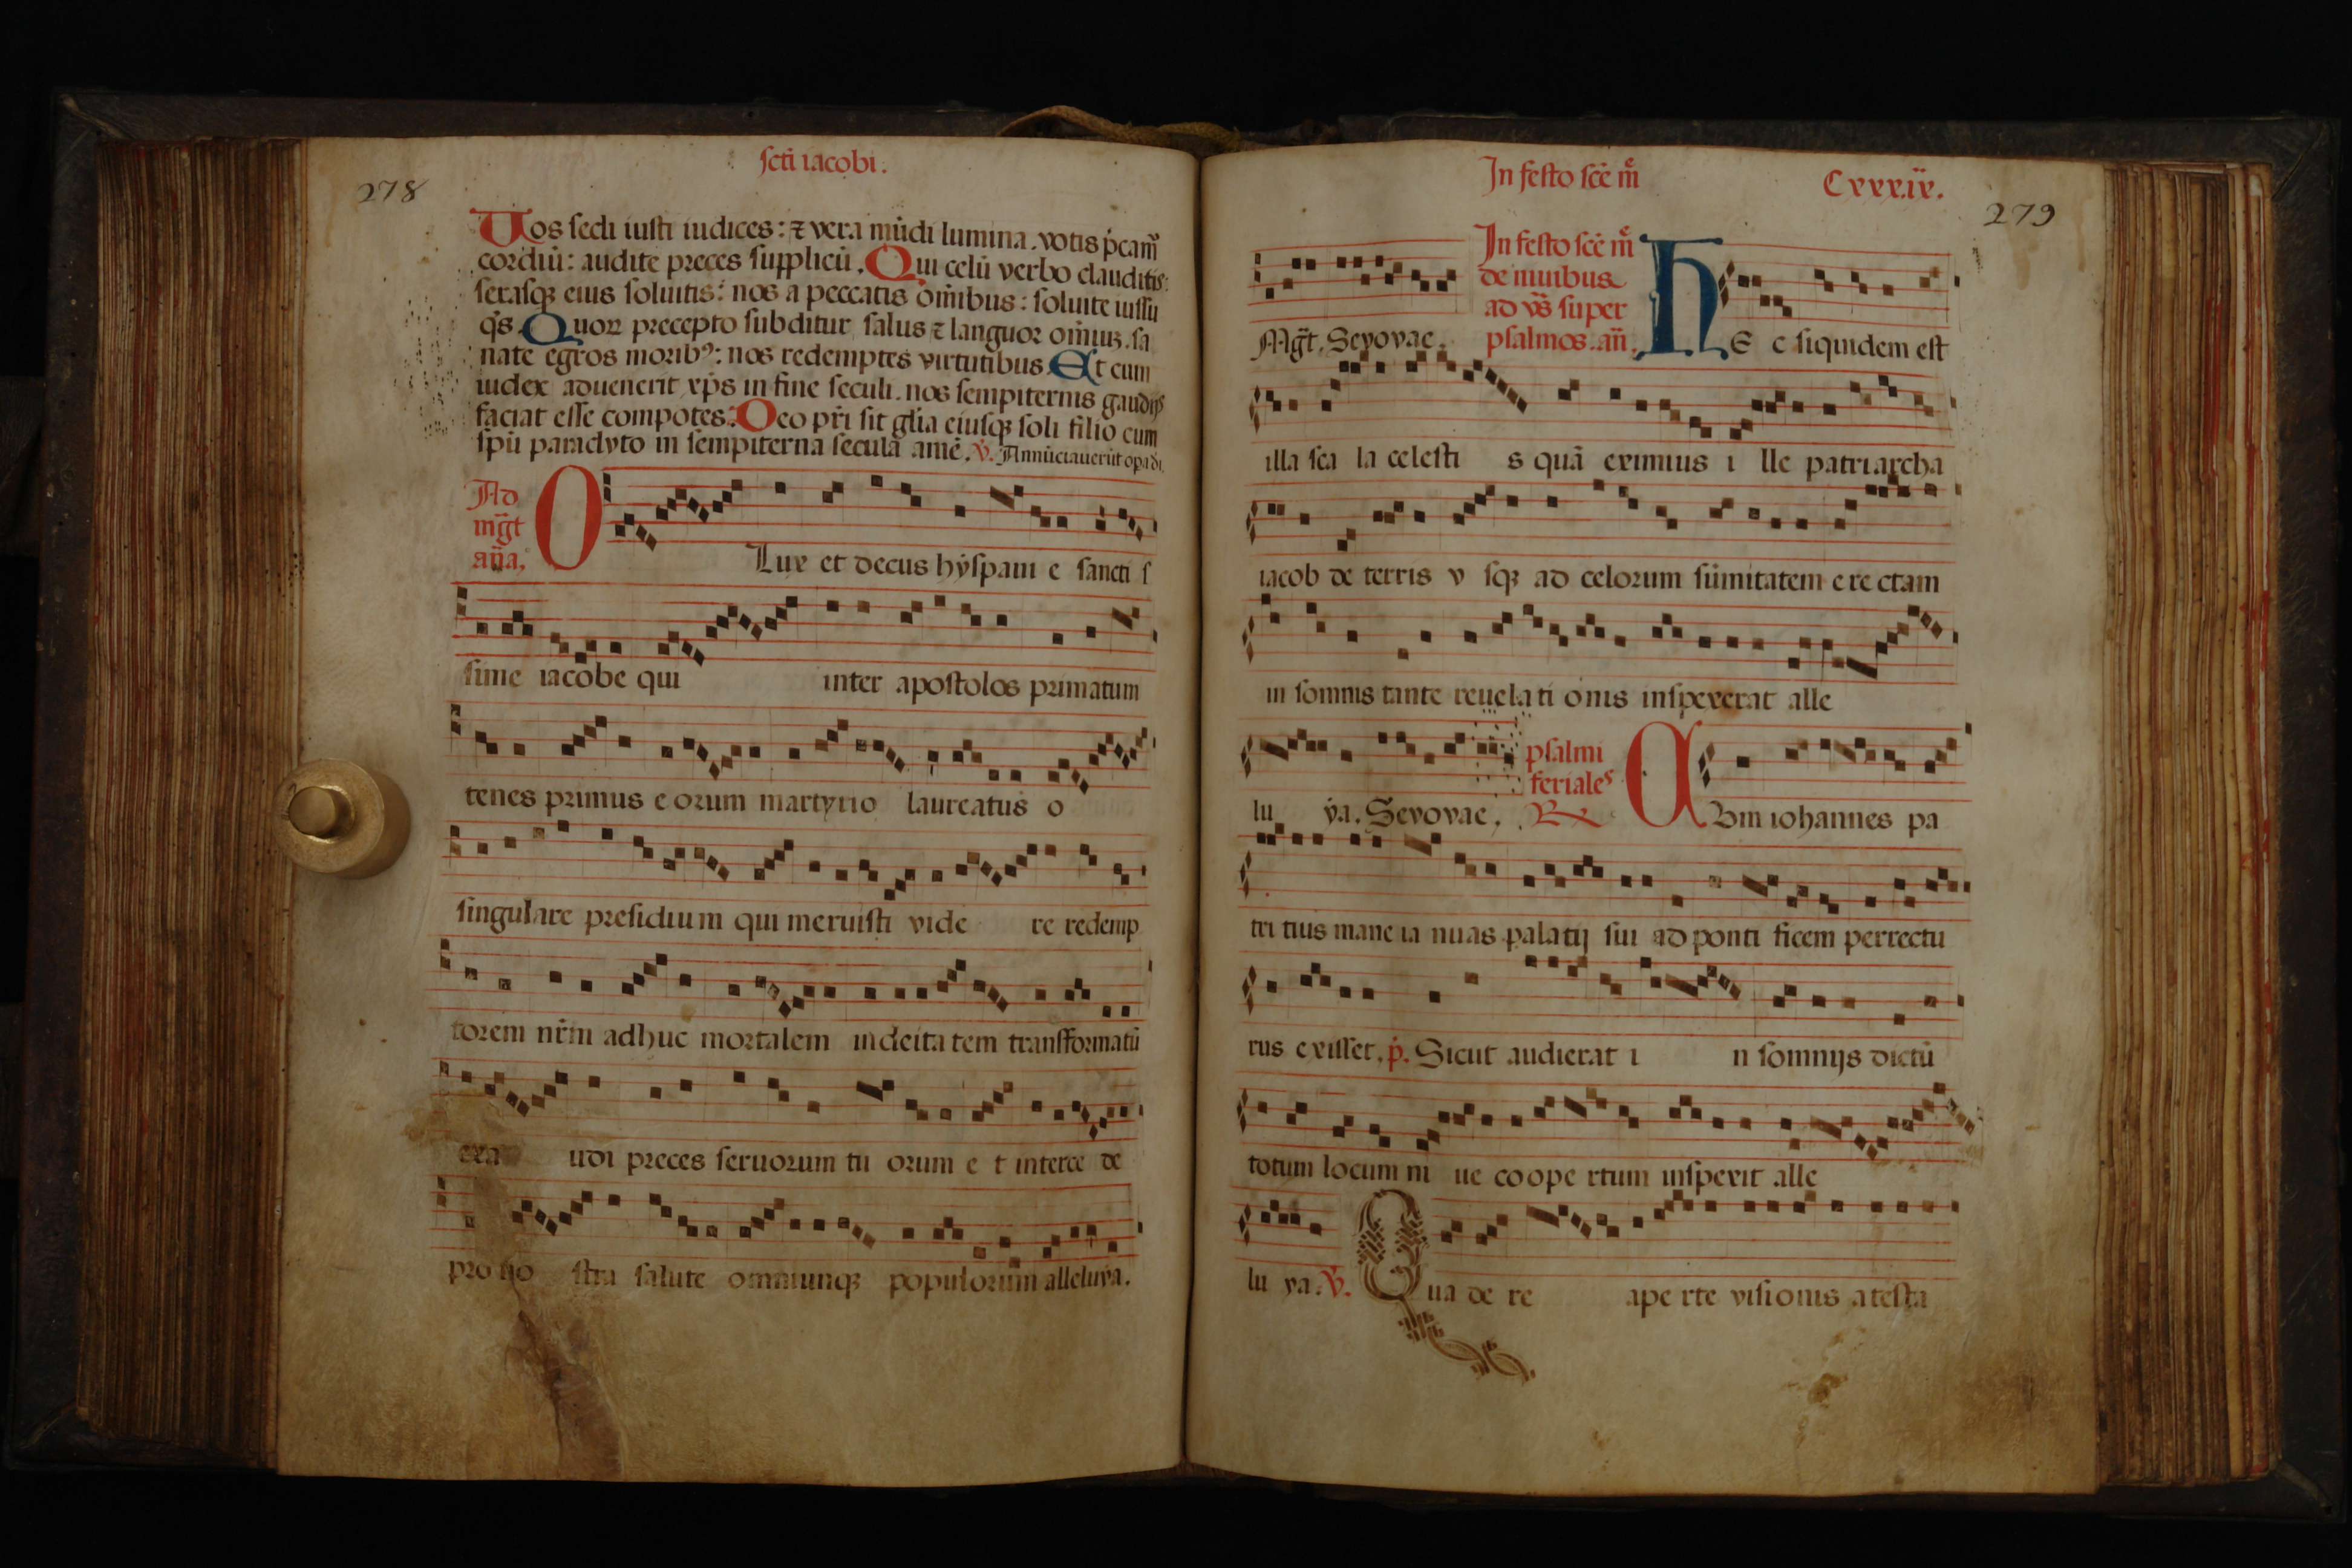 278
scti iacobi.
Uos secli iusti iudices: ⁊ vera mūdi lumina. votis p̄cam̄
cordiū: audite preces supplicū. Qui celū verbo clauditis:
serasqꝫ eius soluitis: nos a peccatis om̄ibus: soluite iussu
q̄s. Quoꝝ precepto subditur salus ⁊ languor om̄iuꝫ. sa
nate egros moribꝰ: nos redemptes virtutibus. Et cum
iudex aduenerit xp̄s in fine seculi. nos sempiternis gaudijs
faciat esse compotes. Deo pr̄i sit gl̄ia eiusqꝫ soli filio cum
sp̄u paraclyto in sempiterna secula amē. v̄. Annūciauerūt opa di.
Ad
mḡt
an̄a.
O Lux et decus hẏspani e sancti s
sime iacobe qui inter apostolos primatum
tenes primus e orum martyrio laureatus o
singulare presidium qui meruisti vide re redemp
torem nr̄m adhuc mortalem in deita tem transformatū
exa udi preces seruorum tu orum e t interce de
pro no stra salute omniumqꝫ populorum alleluẏa.
In festo scē m̄
Cxxx.ix.
279
Mḡt. Seuouae.
In festo scē m̄
de niuibus
ad vs̄ super
psalmos. an̄.
HE c siquidem est
illa sca la celesti s quā eximius i lle patriarcha
iacob de terris v sqꝫ ad celorum sūmitatem e re ctam
in somnis tante reuela ti onis inspexerat alle
lu ẏa. Seuouae.
psalmi
feriales
R℣
Cum iohannes pa
tri tius mane ia nuas palatij sui ad ponti ficem perrectu
rus exisset. p̄. Sicut audierat i n somnijs dictū
totum locum ni ue coope rtum inspexit alle
lu ya. v̄. Qua de re ape rte visionis atesta